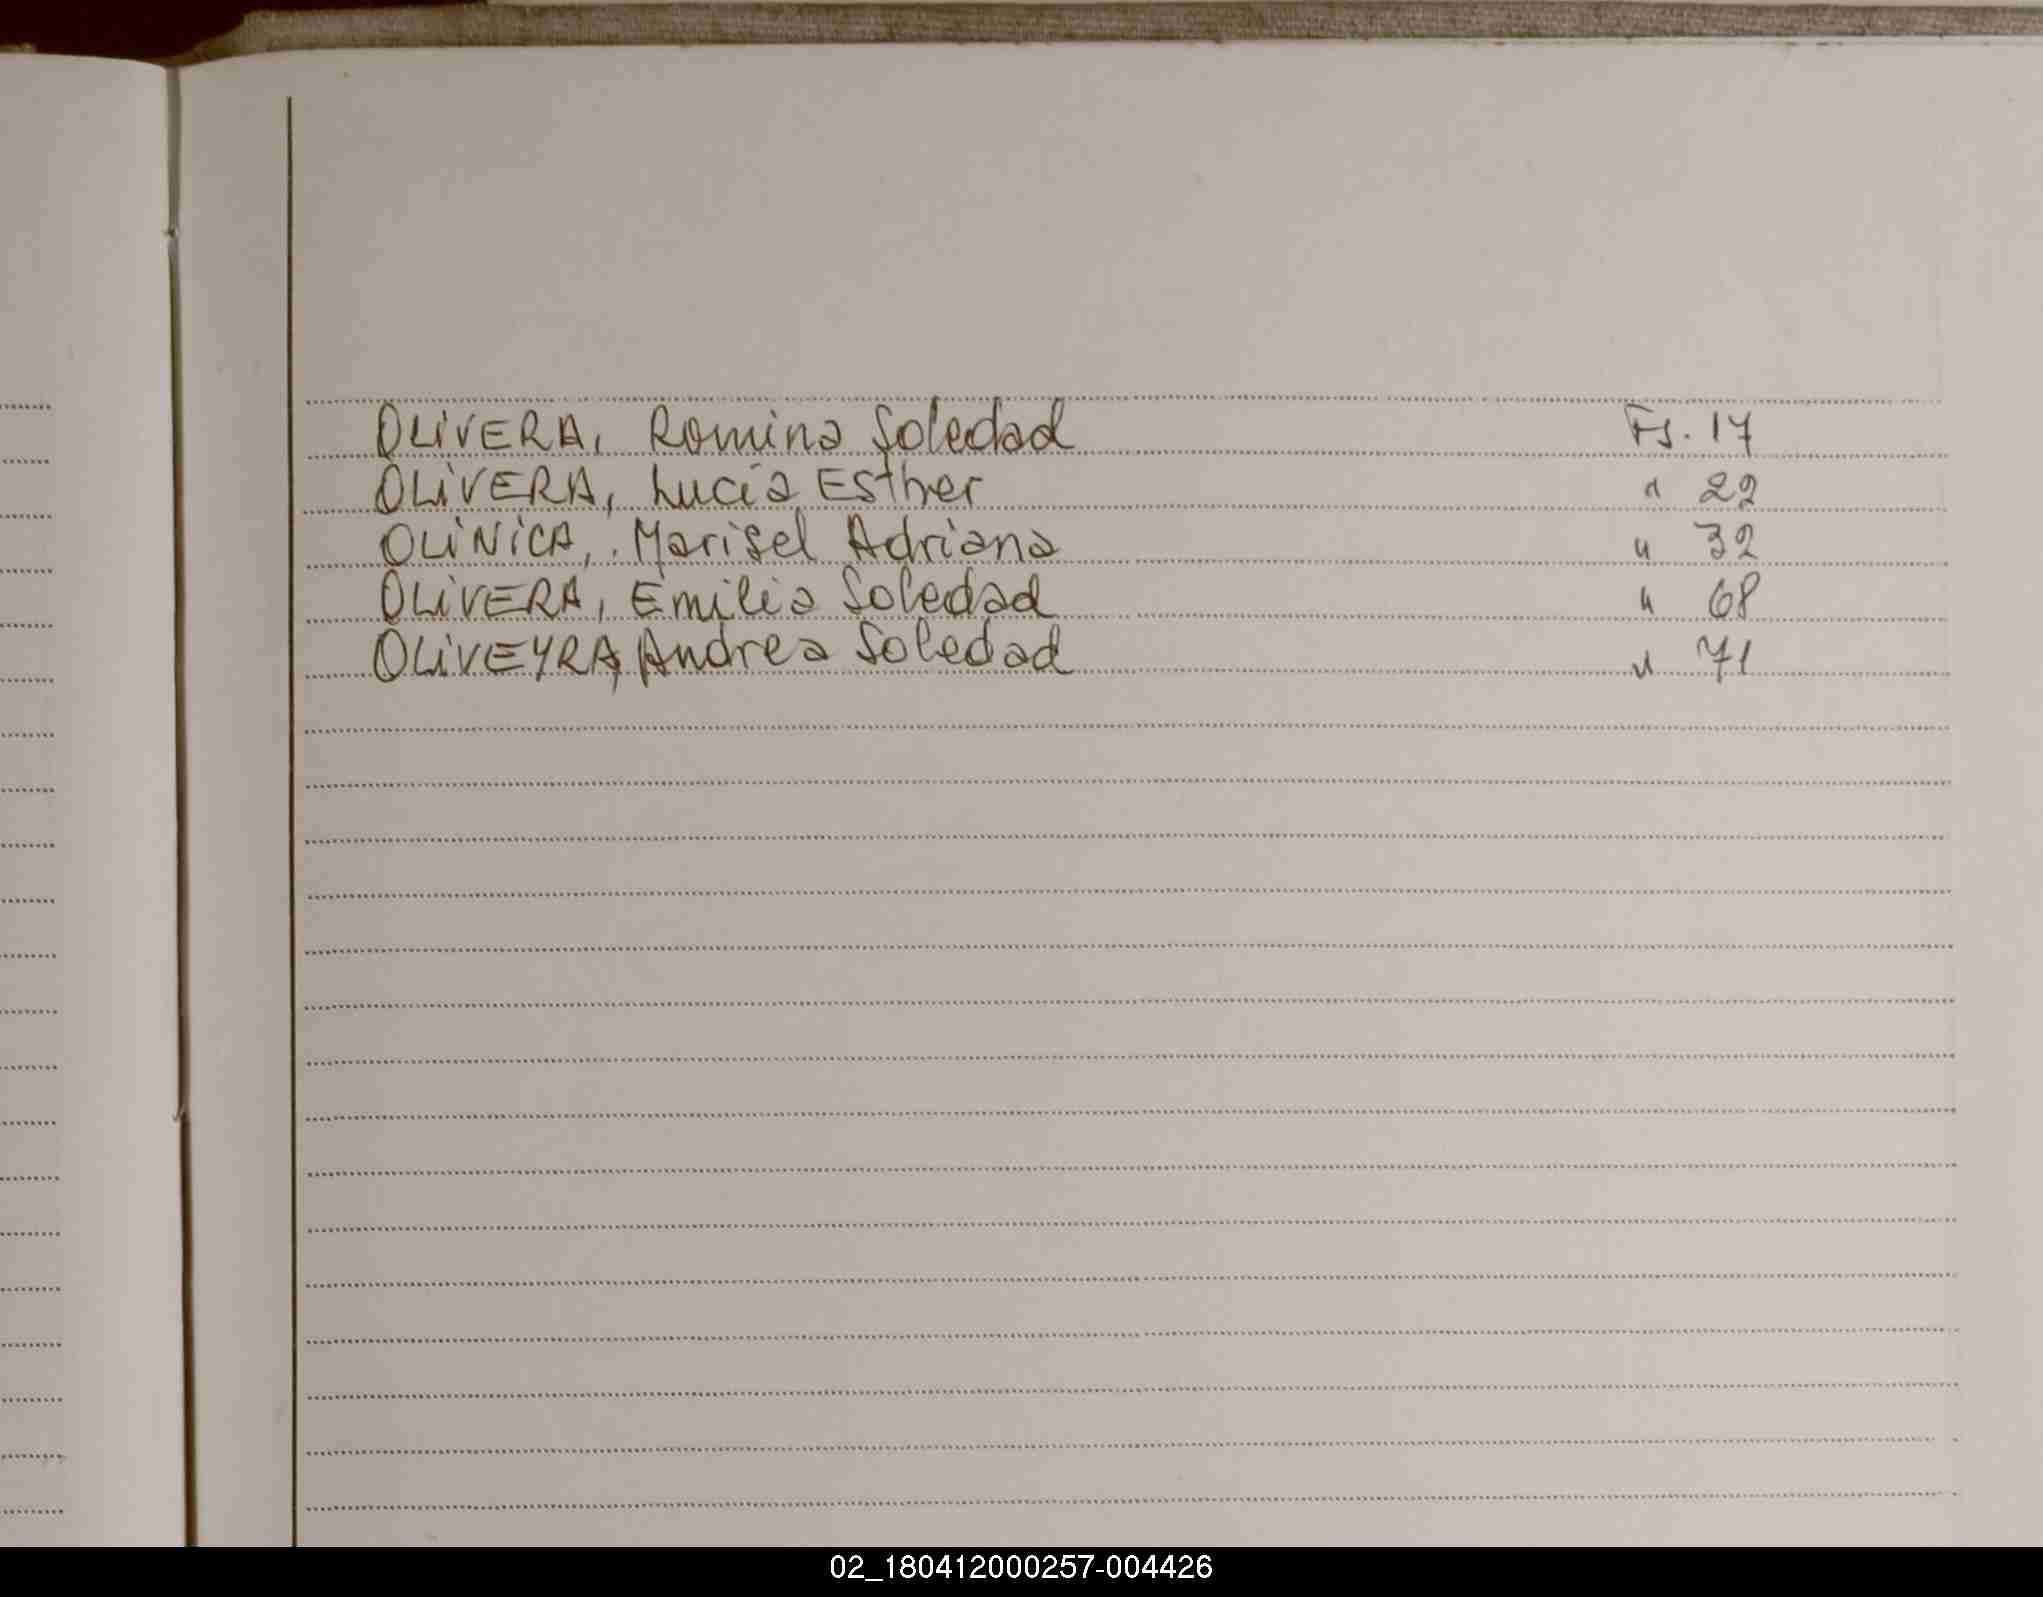 OLIVERA, Romina Soledad Fs. 17
OLIVERA, Lucía Esther " 22
OLINICA, Marisel Adriana " 32
OLIVERA, Emilia Soledad " 68
OLIVEYRA, Andrea Soledad " 71
02_180412000257-004426